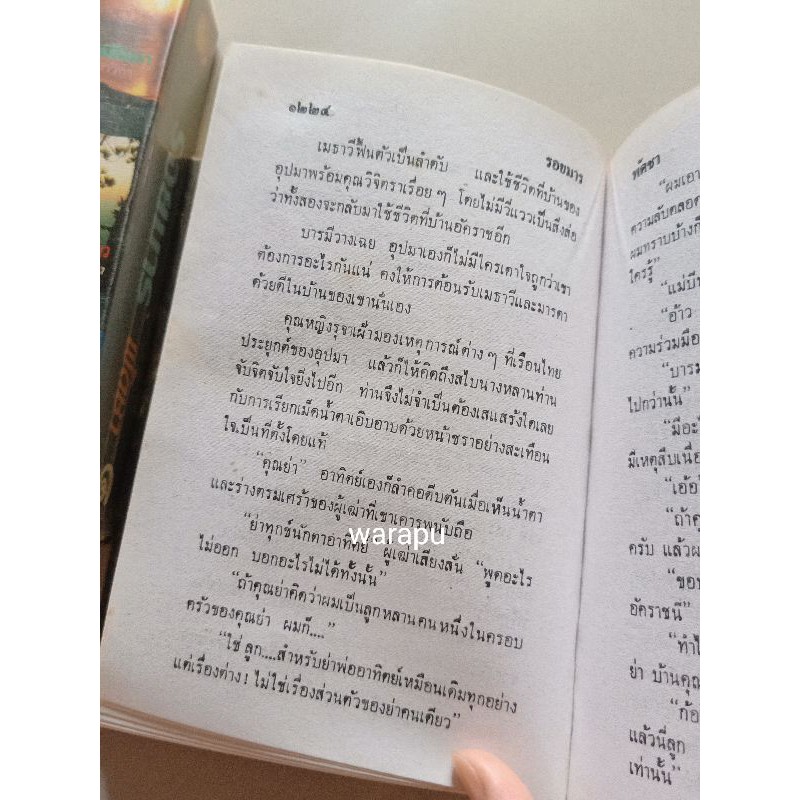 ๑๒๒๔
รอยมาร
เมธาวีฟื้นตัวเป็นลำดับ และใช้ชีวิตที่บ้านของ
อุปมาพร้อมคุณวิจิตราเรื่อยๆ โดยไม่มีวี่แววเป็นสิ่งส่อ
ว่าทั้งสองจะกลับมาใช้ชีวิตที่บ้านอัคราชอีก
บารมีวางเฉย อุปมาเองก็ไม่มีใครเดาใจถูกว่าเขา
ต้องการอะไรกันแน่ คงให้การต้อนรับเมธาวีและมารดา
ด้วยดีในบ้านของเขานั่นเอง
คุณหญิงรุจาเฝ้ามองเหตุการณ์ต่างๆ ที่เรือนไทย
ประยุกต์ของอุปมา แล้วก็ให้คิดถึงสไบนางหลานท่าน
จับจิตจับใจยิ่งไปอีก ท่านจึงไม่จำเป็นต้องเสแสร้งใดเลย
กับการเรียกเม็ดน้ำตาเอิบอาบด้วยหน้าชราอย่างสะเทือน
ใจเป็นที่ตั้งโดยแท้
“คุณย่า” อาทิตย์เองก็ลำคอตีบตันเมื่อเห็นน้ำตา
และร่างตรมเศร้าของผู้เฒ่าที่เขาเคารพนับถือ
warapu
“ย่าทุกข์นักตาอาทิตย์ ผู้เฒ่าเสียงสั่น “พูดอะไร
ไม่ออก บอกอะไรไม่ได้ทั้งนั้น”
“ถ้าคุณย่าคิดว่าผมเป็นลูกหลานคนหนึ่งในครอบ
ครัวของคุณย่า ผมก็....”
“ใช่ลูก....สำหรับย่าพ่ออาทิตย์เหมือนเดิมทุกอย่าง
แต่เรื่องต่าง! ไม่ใช่เรื่องส่วนตัวของย่าคนเดียว”
ทัดชา
“ผมเอา
ความลับตลอด
ผมทราบบ้างก็
ใครรู้”
“แม่บีน
“อ้าว
ความร่วมมือ
“บารม
ไปกว่านั้น”
“มีอะไ
มีเหตุสืบเนื่อ
“เอ้อ
“ถ้าคุ
ครับ แล้วผ
“ขอบ
อัคราชนี”
“ทำไ
ย่า บ้านคุณ
“ก้อ
แล้วนี่ลูก
เท่านั้น”